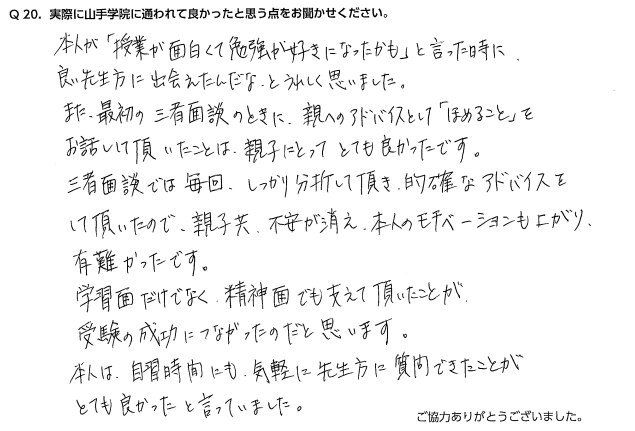 Q20. 実際に山手学院に通われて良かったと思う点をお聞かせください。
本人が「授業が面白くて勉強が好きになったかも」と言った時に、
良い先生方に出会えたんだな、とうれしく思いました。
また、最初の三者面談のときに、親へのアドバイスとして「ほめること」を
お話しして頂いたことは、親子にとってとても良かったです。
三者面談では毎回、しっかり分析して頂き、的確なアドバイスを
して頂いたので、親子共、不安が消え、本人のモチベーションも上がり、
有難かったです。
学習面だけでなく、精神面でも支えて頂いたことが、
受験の成功につながったのだと思います。
本人は、自習時間にも、気軽に先生方に質問できたことが
とても良かったと言っていました。
ご協力ありがとうございました。